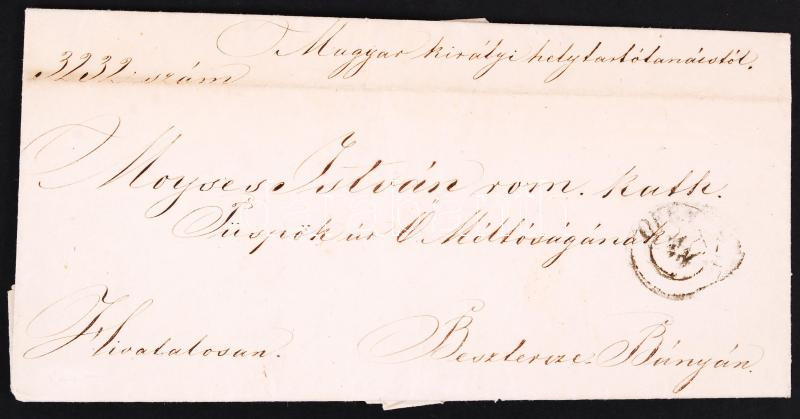 Magyar királyi helytartótanácstól.
3232. szám
Moyses István rom. kath.
Püspök úr Ő Méltóságának
Hivatalosan.
Besztercze-Bányán.